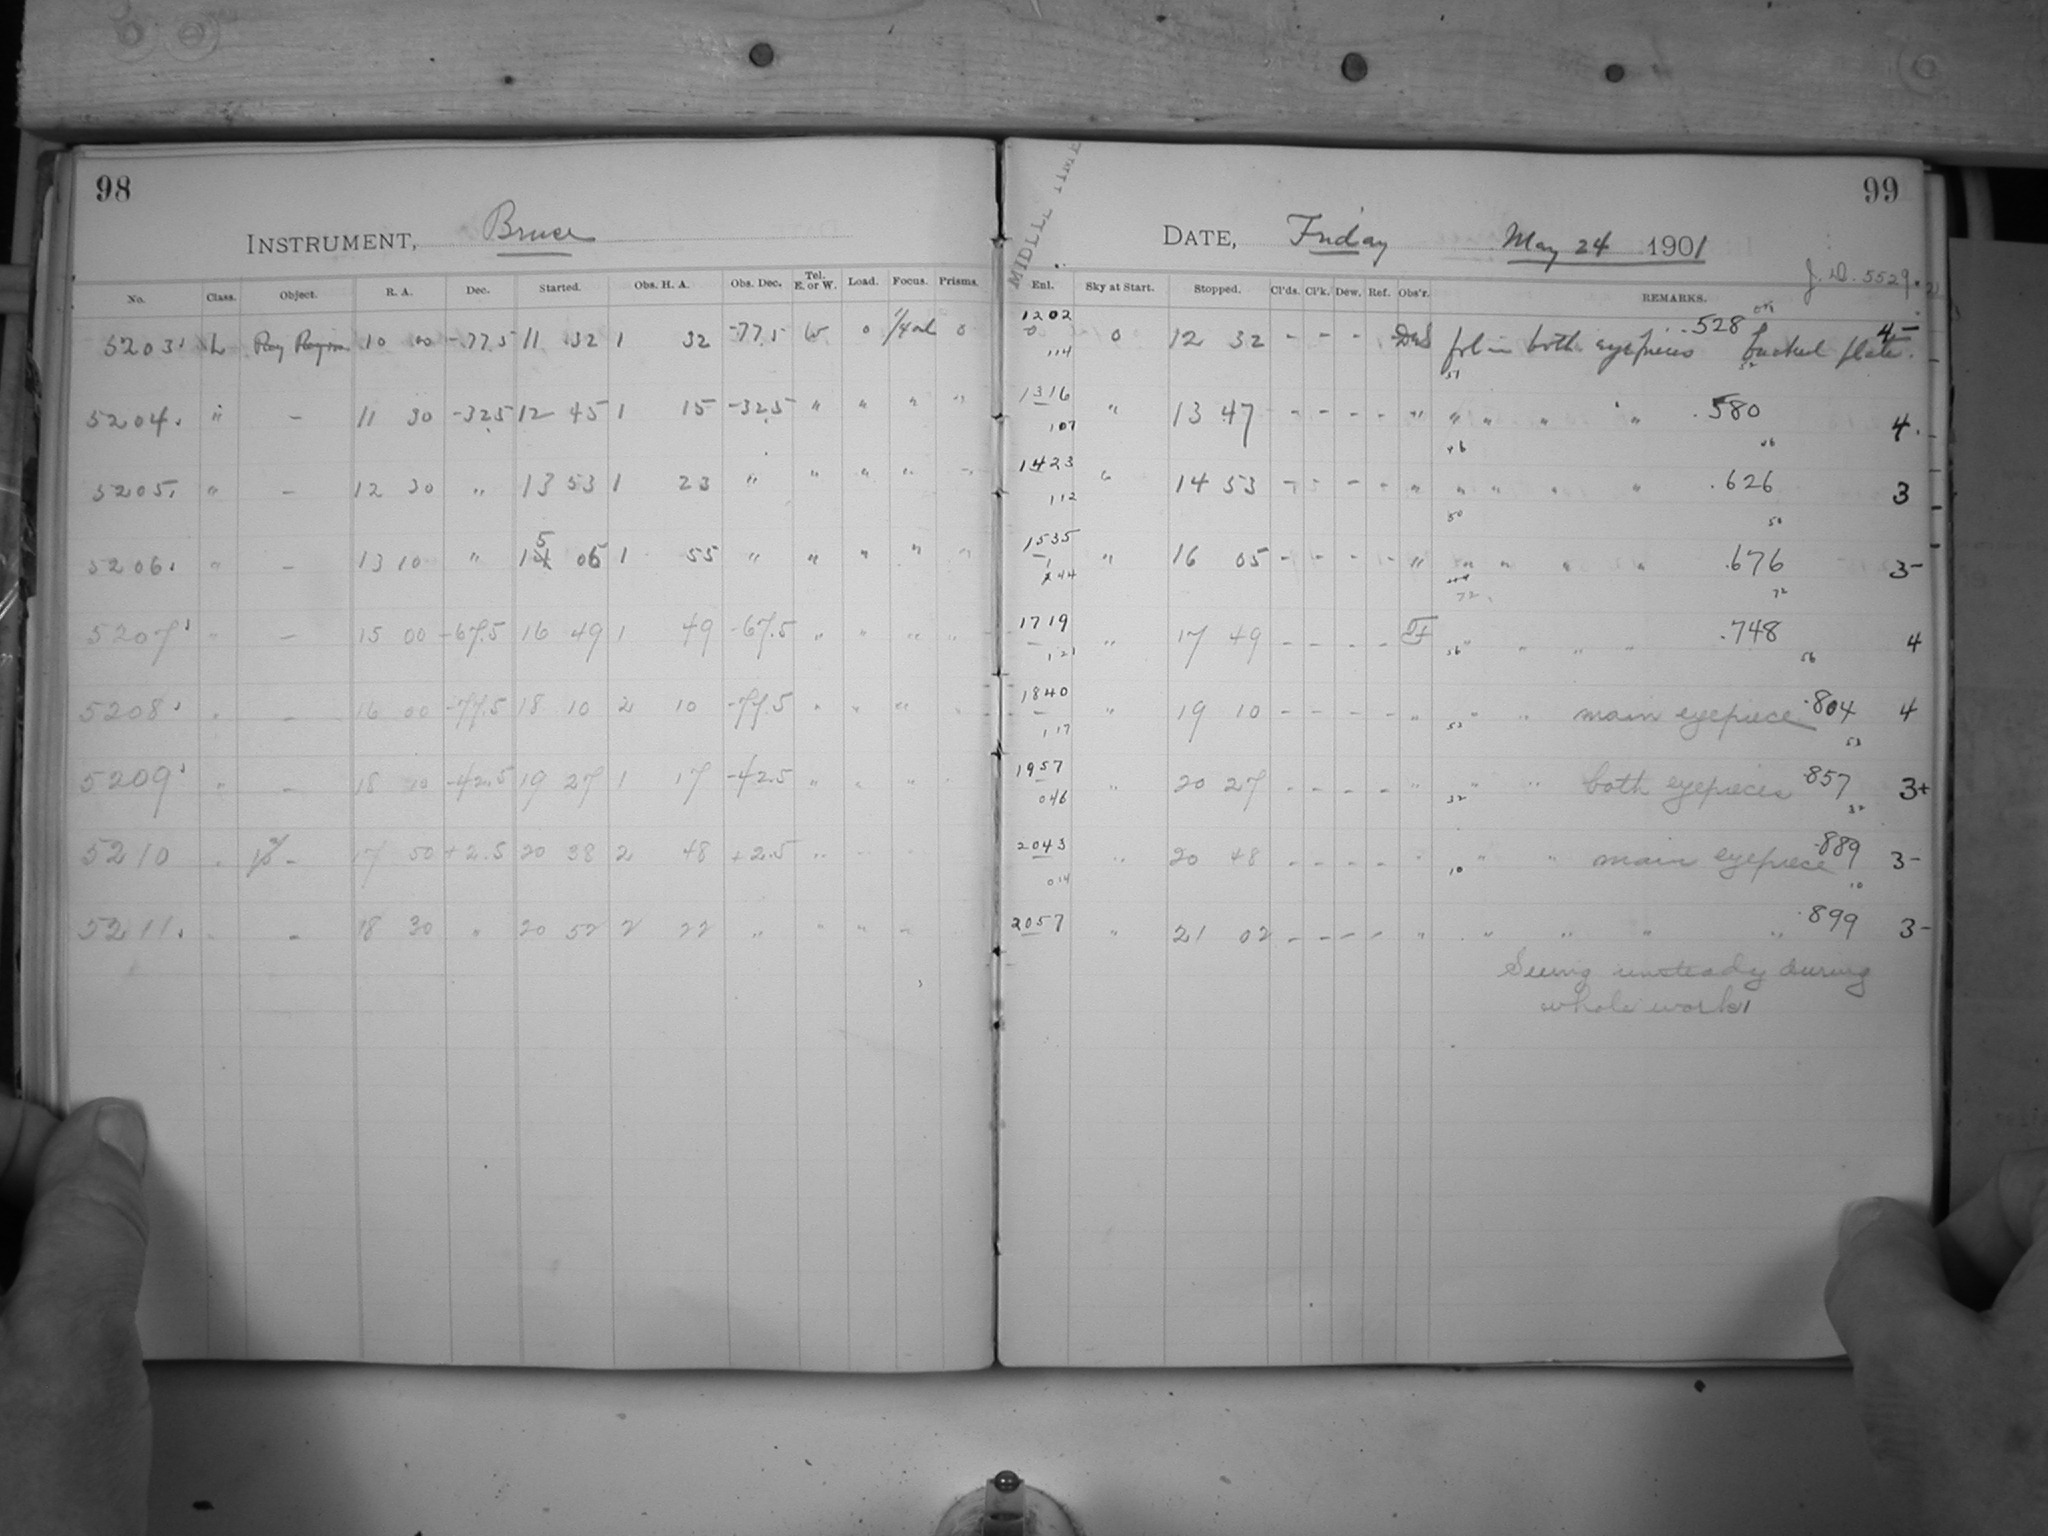 98
99
INSTRUMENT, Bruce
DATE, Friday May 24 1901
J. D. 5529.
No. Class. Object. R. A. Dec. Started. Obs. H. A. Obs. Dec. Tel. E. or W. Load. Focus. Prisms. Enl. Sky at Start. Stopped. Cl'ds. Cl'k. Dew. Ref. Obs'r. REMARKS.
5203 L Reg Region 10 00 -77.5 11 32 1 32 -77.5 W 0 0 1202 0 0 12 32 - - - both eyepieces .528 backed plate. 4-
114
5204. " - 11 30 -32.5 12 45 1 15 -32.5 " " " " 1316 " 13 47 - - - - " " " " " .580 4.
107 46 46
5205. " - 12 30 " 13 53 1 23 " " " " 1423 14 53 - - - - " " " " " .626 3
112 50 50
5206. " - 13 10 " 15 05 1 55 " " " " " 1535 " 16 05 - - - - " " " " " .676 3-
144 72 72
5207 " - 15 00 -67.5 16 49 1 49 -67.5 " " " " 1719 " 17 49 - - - - " " " " .748 4
121 56 56
5208 - 16 00 -77.5 18 10 2 10 -77.5 " " " " 1840 " 19 10 - - - - " " " main eyepiece .804 4
117 53 53
5209 - 18 10 -42.5 19 27 1 17 -42.5 " " " 1957 " 20 27 - - - - " " " both eyepieces .857 3+
046 32 32
5210 - 17 50 +2.5 20 38 2 48 +2.5 " 2043 " 20 48 - - - - " " " main eyepiece .889 3-
014 10 10
5211. - 18 30 " 20 52 2 22 " " " 2057 " 21 02 - - - - " " " " " .899 3-
Seeing unsteady during
whole work